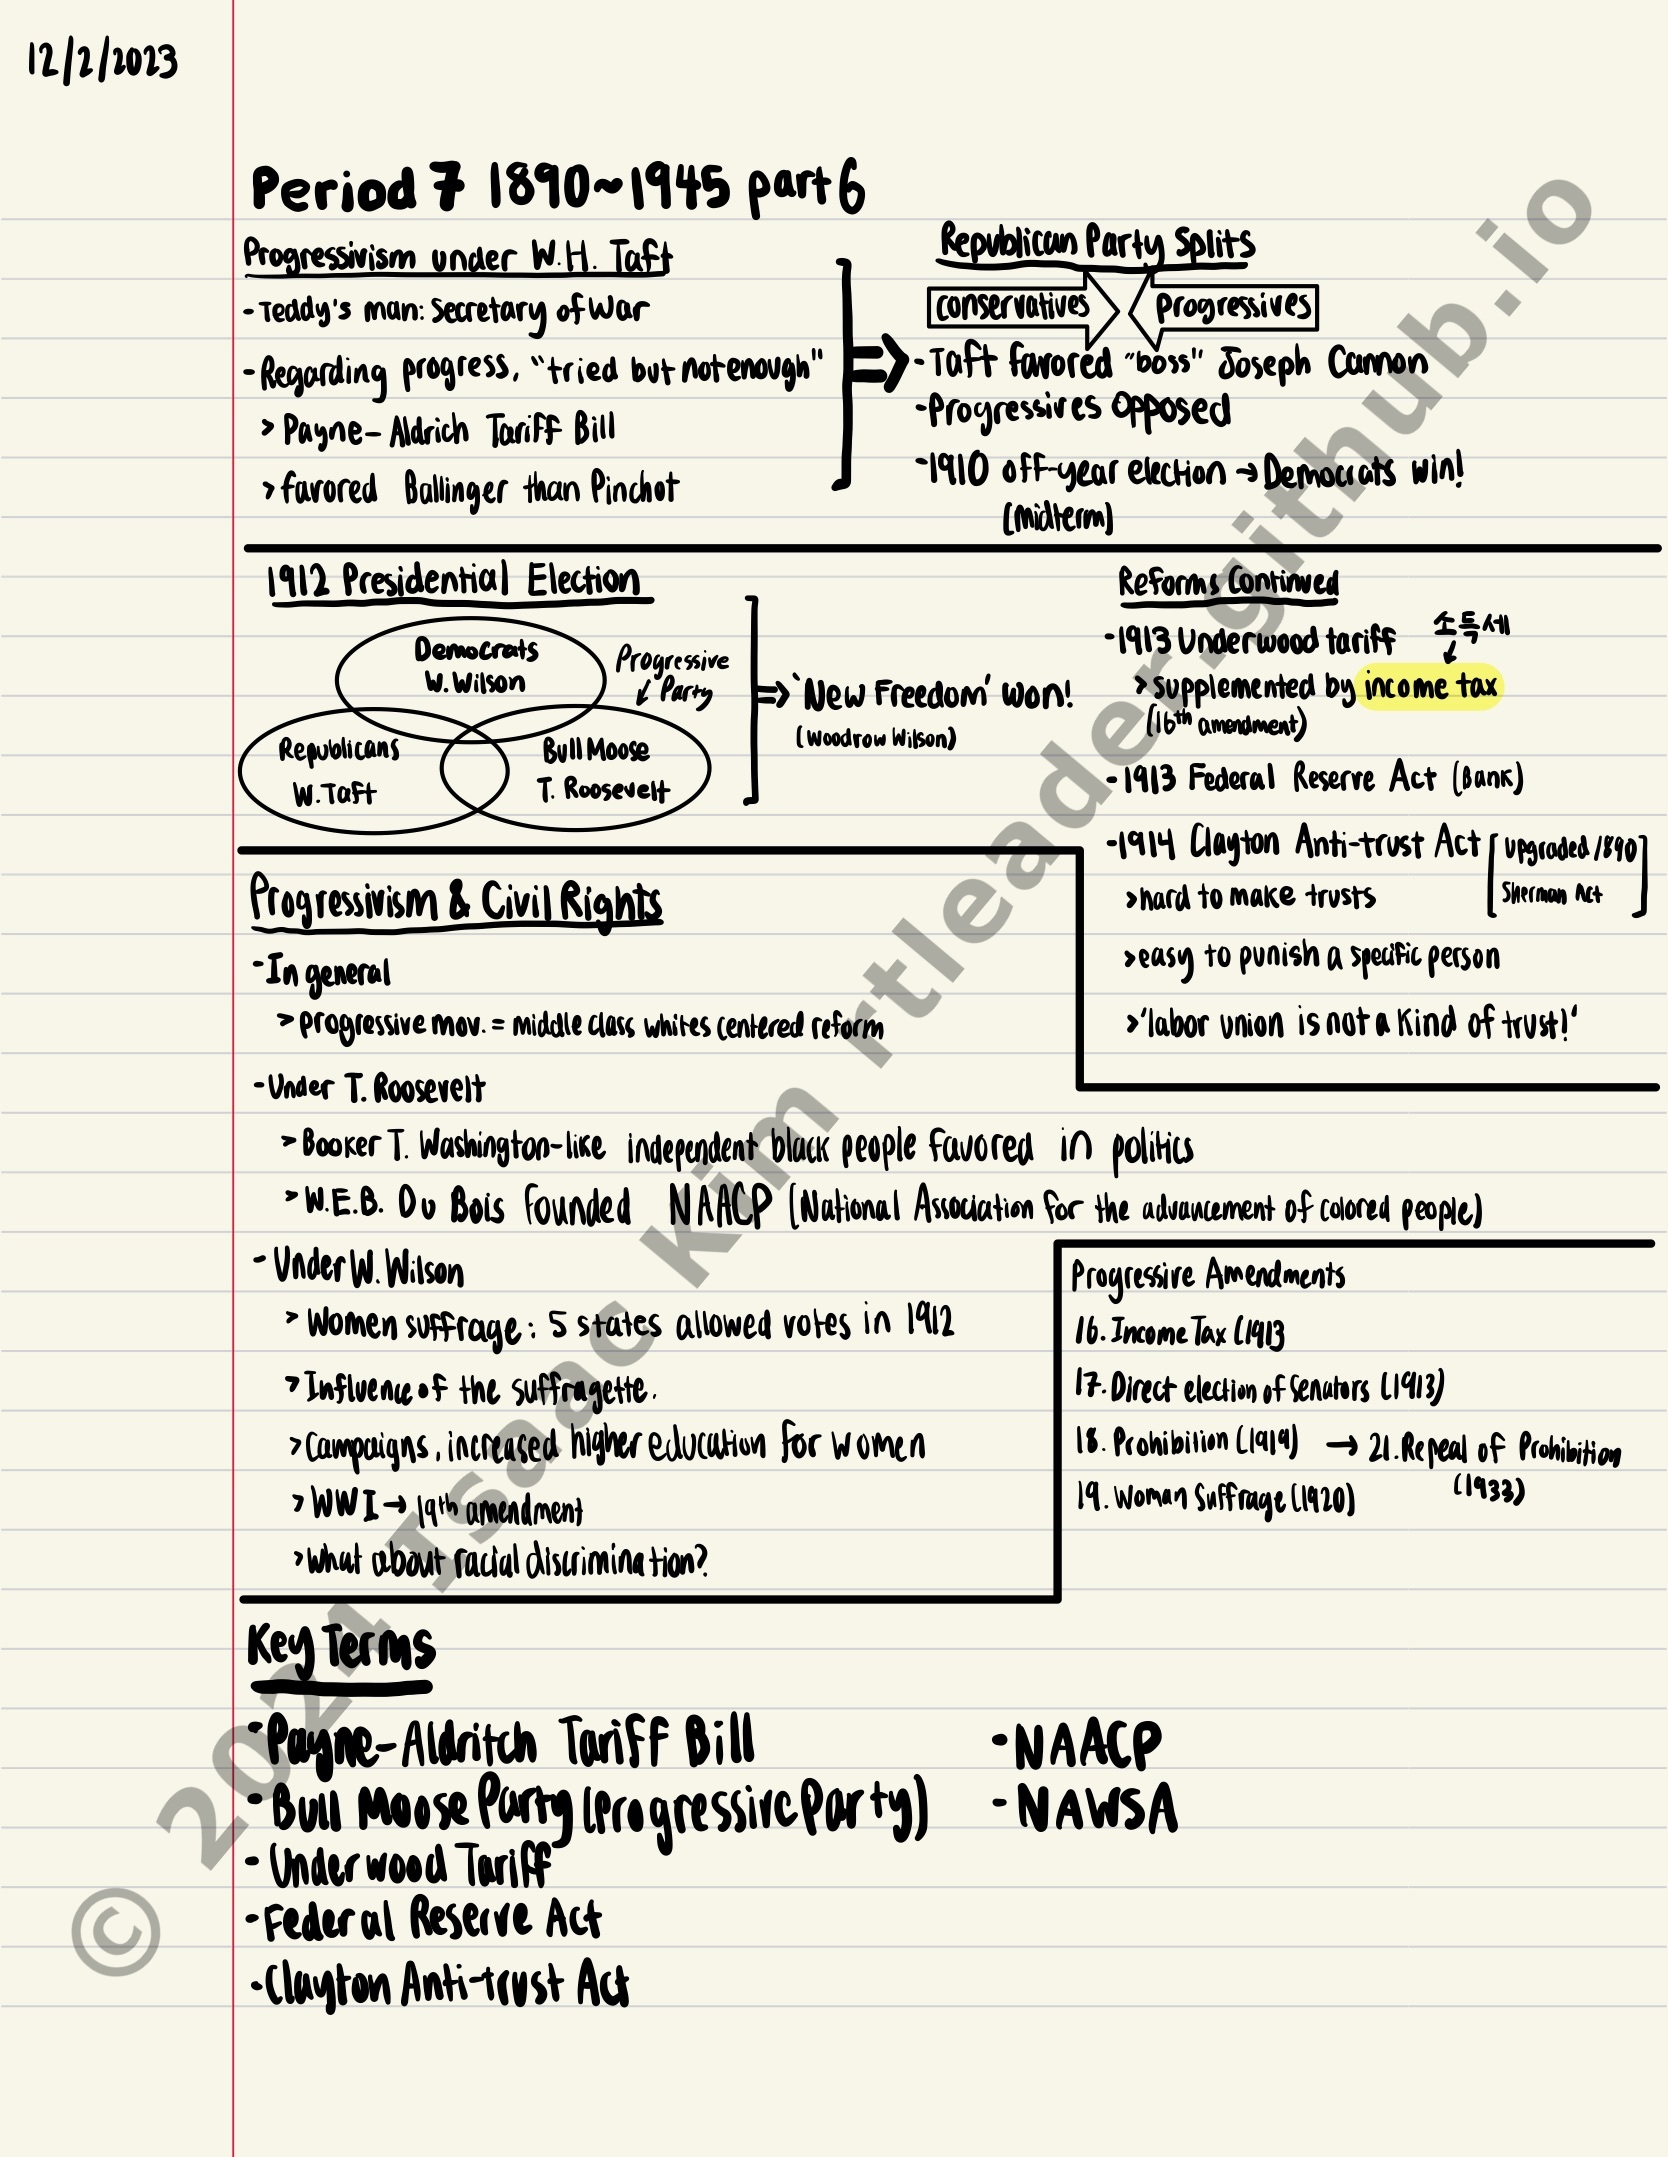 12/2/2023
Period 7 1890~1945 part 6
Progressivism under W.H. Taft
-Teddy's man: Secretary of War
-Regarding progress, "tried but not enough"
> Payne-Aldrich Tariff Bill
> favored Ballinger than Pinchot
Republican Party Splits
conservatives
progressives
-Taft favored "boss" Joseph Cannon
-Progressives Opposed
-1910 off-year election → Democrats win!
(Midterm)
1912 Presidential Election
Democrats
W. Wilson
Progressive
Party
Republicans
W. Taft
Bull Moose
T. Roosevelt
'New Freedom' won!
(Woodrow Wilson)
Reforms Continued
-1913 Underwood tariff
소득세
> Supplemented by income tax
(16th amendment)
-1913 Federal Reserve Act (Bank)
-1914 Clayton Anti-trust Act [upgraded 1890
Sherman Act]
>hard to make trusts
>easy to punish a specific person
>'labor union is not a kind of trust!'
Progressivism & Civil Rights
-In general
> progressive mov. = middle class whites centered reform
-Under T. Roosevelt
> Booker T. Washington-like independent black people favored in politics
> W.E.B. Du Bois founded NAACP (National Association for the advancement of colored people)
- Under W. Wilson
> Women suffrage: 5 states allowed votes in 1912
> Influence of the suffragette.
>Campaigns, increased higher education for women
> WWI → 19th amendment
>What about racial discrimination?
Progressive Amendments
16. Income Tax (1913
17. Direct election of Senators (1913)
18. Prohibition (1919) → 21. Repeal of Prohibition
(1933)
19. Woman Suffrage (1920)
Key Terms
-Payne-Aldritch Tariff Bill
- Bull Moose Party (Progressive Party)
- Underwood Tariff
-Federal Reserve Act
-Clayton Anti-trust Act
-NAACP
-NAWSA
© 2024 Isaac Kim rtleader.github.io